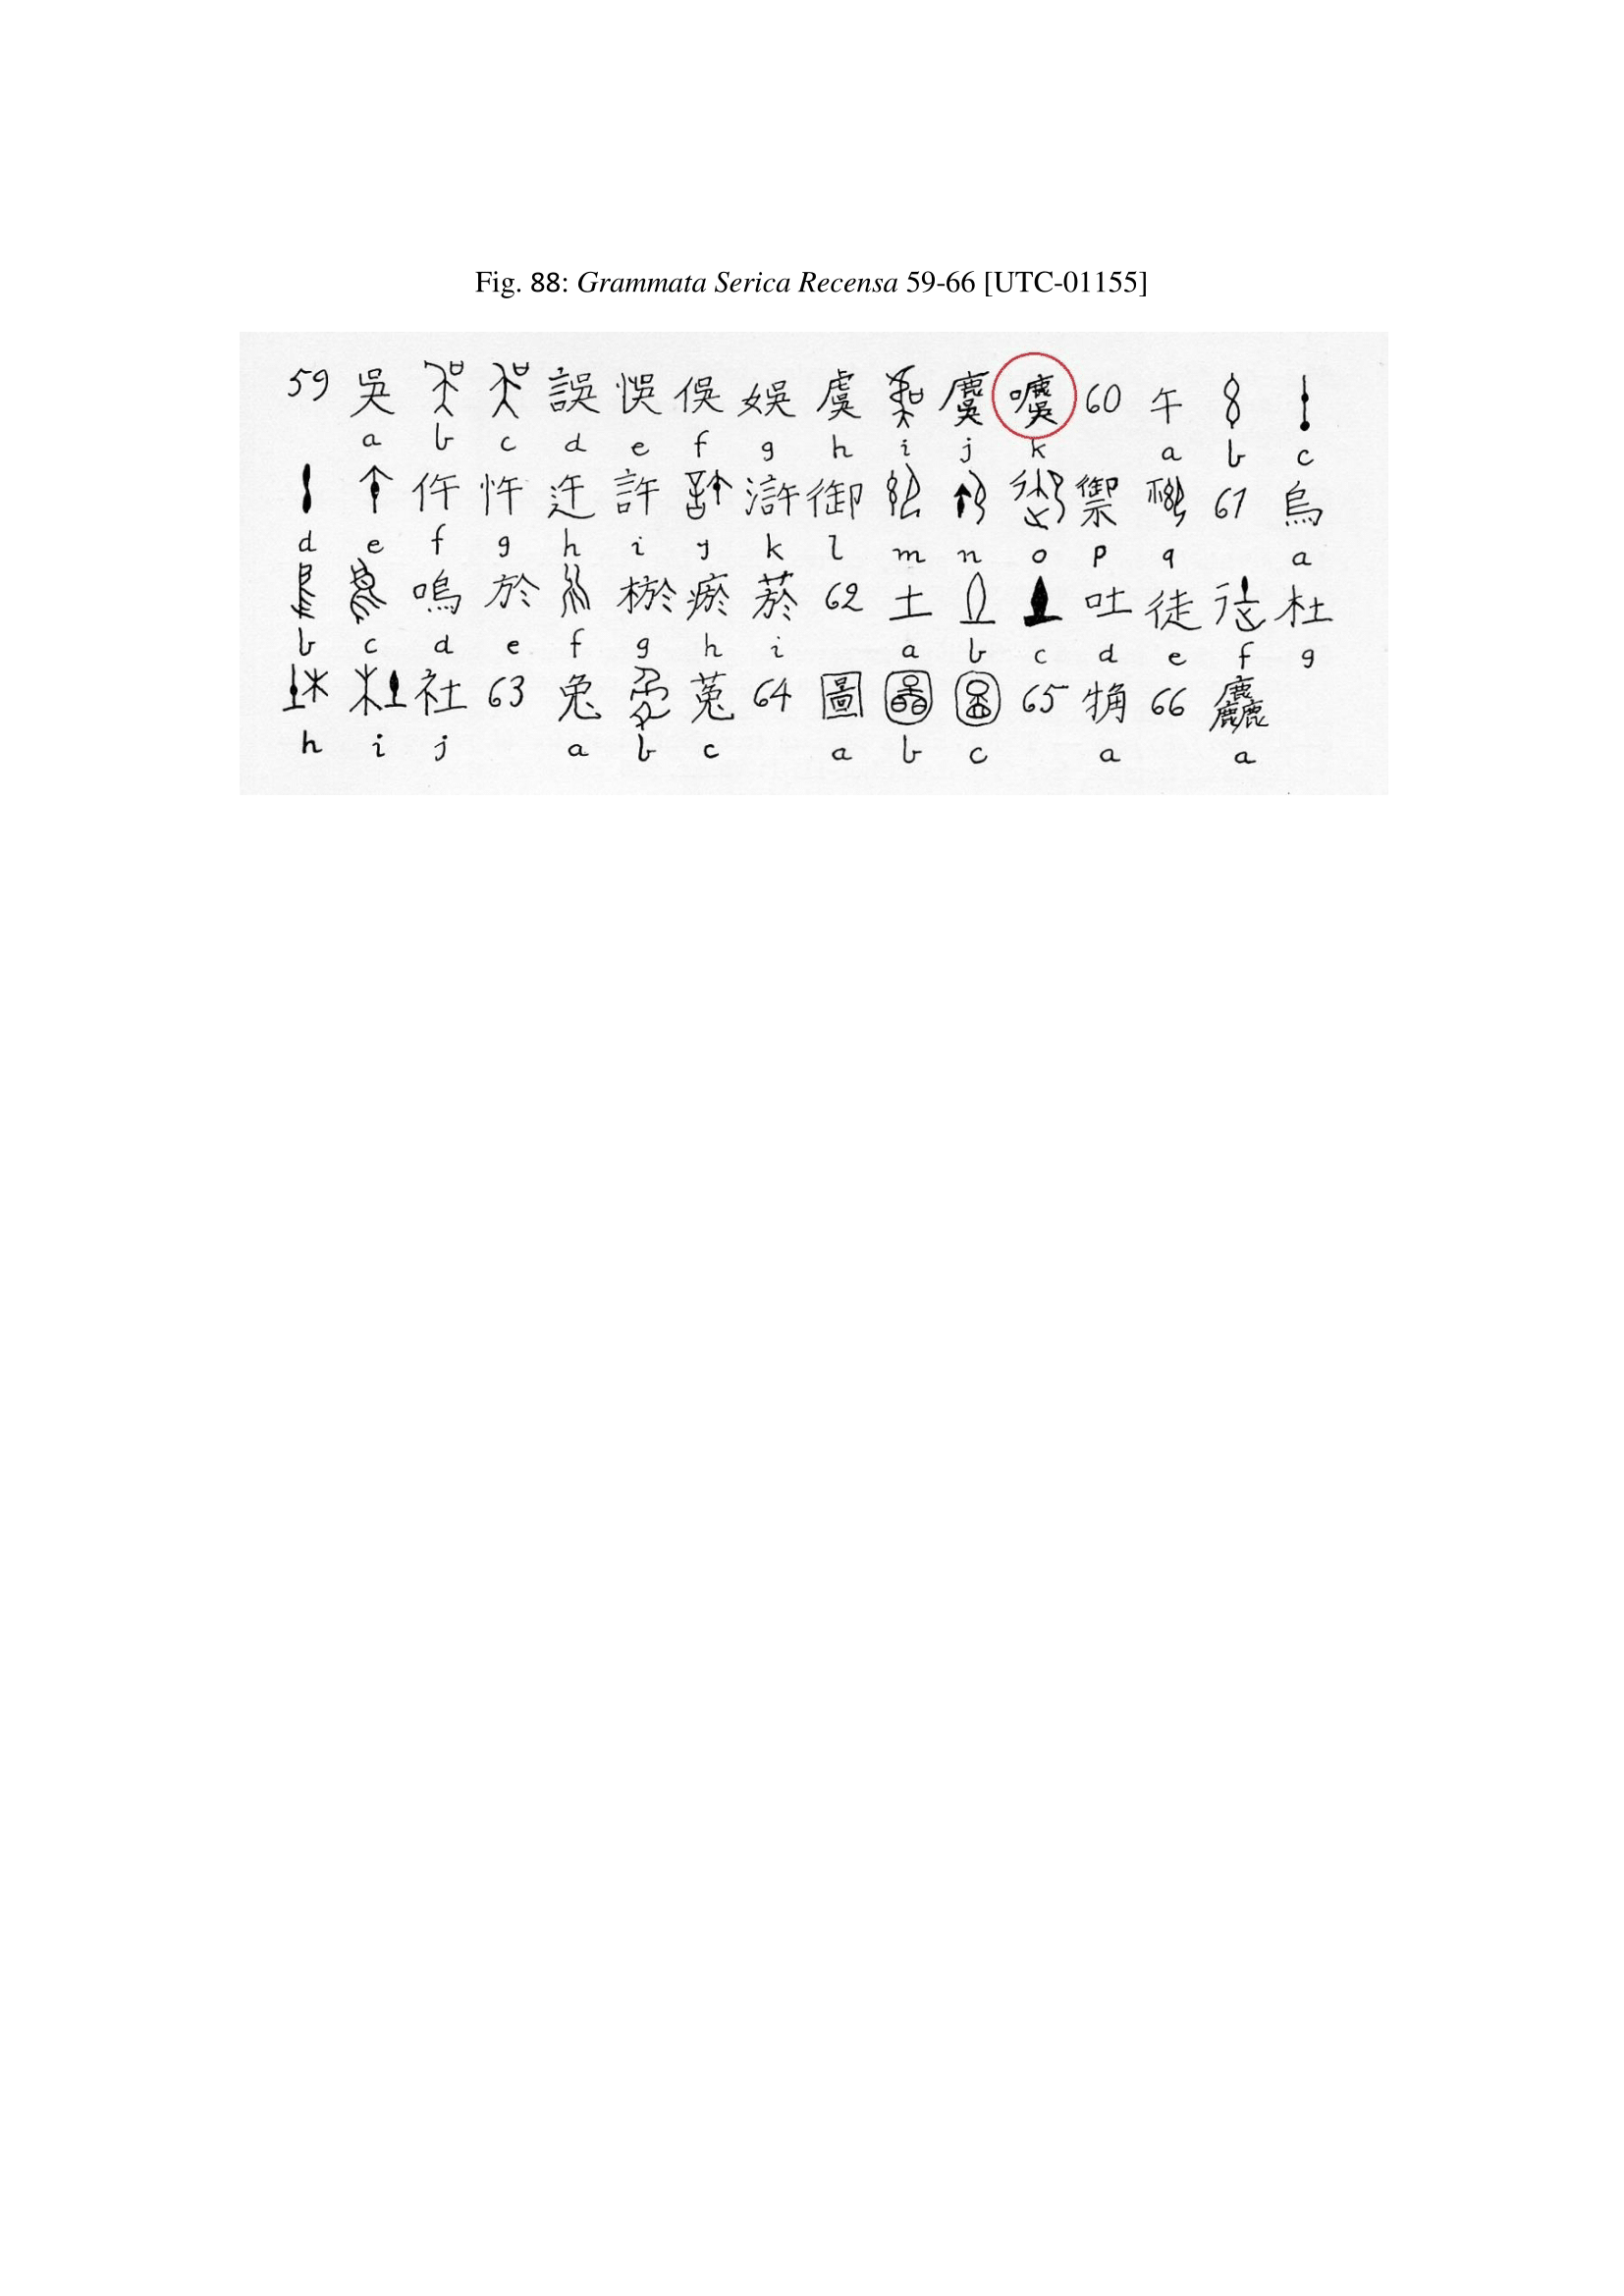 Fig. 88: Grammata Serica Recensa 59-66 [UTC-01155]
59 吳 誤 悞 俁 娛 虞 麌 噳 60 午
a b c d e f g h i j k a b c
仵 忤 迕 許 滸 御 禦 61 烏
d e f g h i j k l m n o p q a
嗚 於 棜 瘀 菸 62 土 吐 徒 杜
b c d e f g h i a b c d e f g
社 63 兔 菟 64 圖 65 觕 66 麤
h i j a b c a b c a a